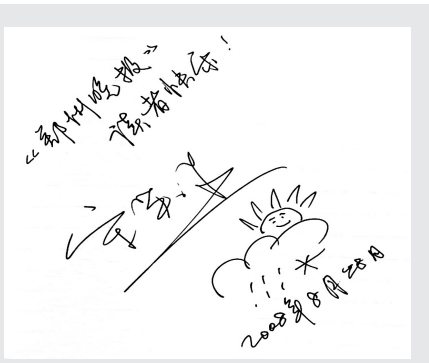 《郑州晚报》
读者快乐！
2008年8月28日